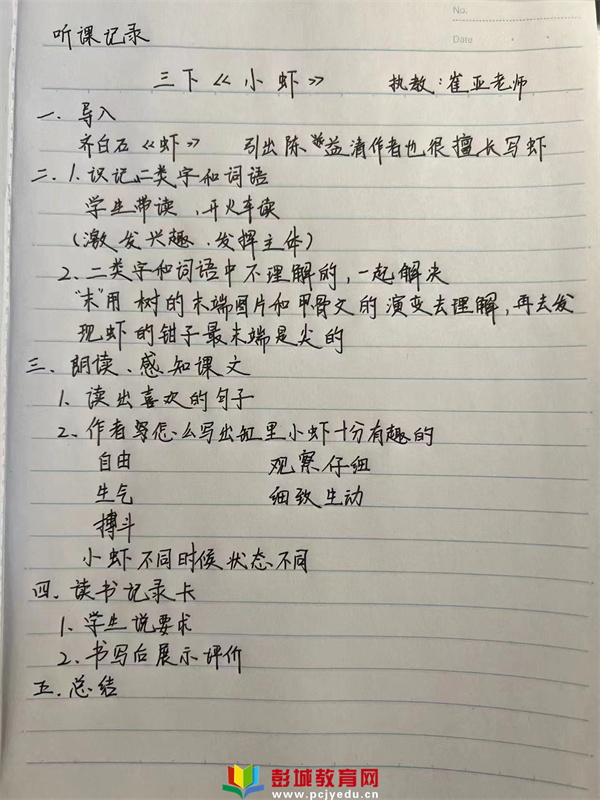 No.
Date
听课记录
三下《小虾》 执教:崔亚老师
一.导入
齐白石《虾》 引出陈益清作者也很擅长写虾
二.1.识记二类字和词语
学生带读、开火车读
(激发兴趣、发挥主体)
2.二类字和词语中不理解的,一起解决
"末"用树的末端图片和甲骨文的演变去理解,再去发
现虾的钳子最末端是尖的
三.朗读、感知课文
1.读出喜欢的句子
2.作者怎么写出缸里小虾十分有趣的
自由 观察仔细
生气 细致生动
搏斗
小虾不同时候状态不同
四.读书记录卡
1.学生说要求
2.书写后展示评价
五.总结
彭城教育网
www.pcjyedu.cn